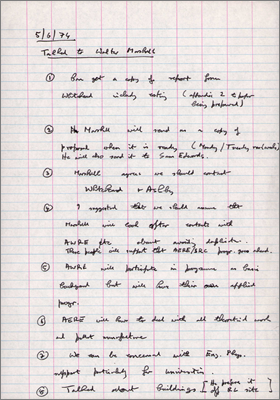 5/6/74
Talked to Walter Marshall
① Has got a copy of report from
Whitehead including costing (appendix 2 to paper
being prepared)
② Marshall will send us a copy of
proposal when it is ready (Monday/Tuesday
He will also send it to Sam Edwards.
③ Marshall agrees we should contact
Whitehead + Ashby
④ I suggested that we should assume that
Marshall will look after contacts with
AWRE etc about avoiding duplication.
These people will support that AERE/SRC progr. goes ahead.
⑤ AWRE will participate in programme as basic
background but will have their own applied
progr.
⑥ AERE will have to deal with all theoretical work
and pellet manufacture
⑦ We can be concerned with Eng. Phys.
support particularly for construction.
⑧ Talked about buildings [He prefers it
off RL site]